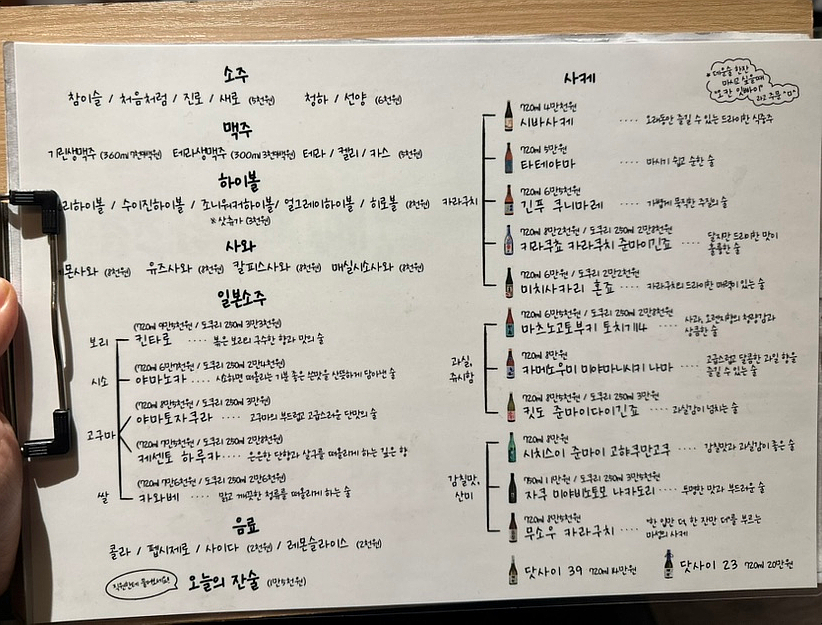 소주
참이슬 / 처음처럼 / 진로 / 새로 (5천원) 청하 / 선양 (6천원)
맥주
기린생맥주 (360ml 7천5백원) 테라생맥주 (300ml 3천5백원) 테라 / 켈리 / 카스 (5천원)
하이볼
리하이볼 / 수이진하이볼 / 조니워커하이볼 / 얼그레이하이볼 / 히로볼 (8천원)
※ 샷추가 (3천원)
사와
몬사와 (8천원) 유즈사와 (8천원) 칼피스사와 (8천원) 매실시소사와 (8천원)
일본소주
보리
(720ml 9만5천원 / 도쿠리 250ml 3만3천원)
킨타로 .... 볶은 보리의 구수한 향과 맛의 술
시소
(720ml 6만7천원 / 도쿠리 250ml 2만4천원)
야마노카 .... 시소하면 떠올리는 기분 좋은 쓴맛을 산뜻하게 담아낸 술
고구마
(720ml 8만5천원 / 도쿠리 250ml 3만원)
야마토자쿠라 .... 고구마의 부드럽고 고급스러운 단맛의 술
(720ml 7만5천원 / 도쿠리 250ml 2만8천원)
케센토 하루카 .... 은은한 단향과 살구를 떠올리게 하는 깊은 향
쌀
(720ml 7만6천원 / 도쿠리 250ml 2만6천원)
카와베 .... 맑고 깨끗한 청류를 떠올리게 하는 술
음료
콜라 / 펩시제로 / 사이다 (2천원) / 레몬슬라이스 (2천원)
직원한테 물어보세요!
오늘의 잔술 (1만5천원)
사케
*데운술 한잔
마시고 싶을때
"오칸 잇빠이"
라고 주문 "ㅁ"
카라구치
720ml 4만천원
시바사케 .... 오래동안 즐길 수 있는 드라이한 식중주
720ml 5만원
타테야마 .... 마시기 쉽고 순한 술
720ml 6만5천원
긴푸 쿠니마레 .... 가볍게 묵직한 주질의 술
720ml 8만2천원 / 도쿠리 250ml 2만8천원
키라쿠쵸 카라쿠치 준마이긴죠 .... 달지만 드라이한 맛이
훌륭한 술
720ml 6만원 / 도쿠리 250ml 2만2천원
미치사카리 혼죠 .... 카라구치의 드라이한 매력이 있는 술
과실,
쥬시함
720ml 6만5천원 / 도쿠리 250ml 2만8천원
마츠노고토부키 토치기14 .... 사과, 오렌지향의 청량감과
상큼한 술
720ml 8만원
카메소우미 미야마니시키 나마 .... 고급스럽고 달콤한 과일 향을
즐길 수 있는 술
720ml 8만5천원 / 도쿠리 250ml 3만원
킷도 준마이다이긴죠 .... 과실감이 넘치는 술
감칠맛,
산미
720ml 8만원
시치스이 준마이 고햐쿠만고쿠 .... 감칠맛과 과실감이 좋은 술
750ml 11만원 / 도쿠리 250ml 3만5천원
자쿠 미야비노토모 나카도리 .... 투명한 맛과 부드러운 술
720ml 8만5천원
무소우 카라구치 .... "한 입만 더, 한 잔만 더"를 부르는
마성의 사케
닷사이 39 720ml 14만원 닷사이 23 720ml 20만원